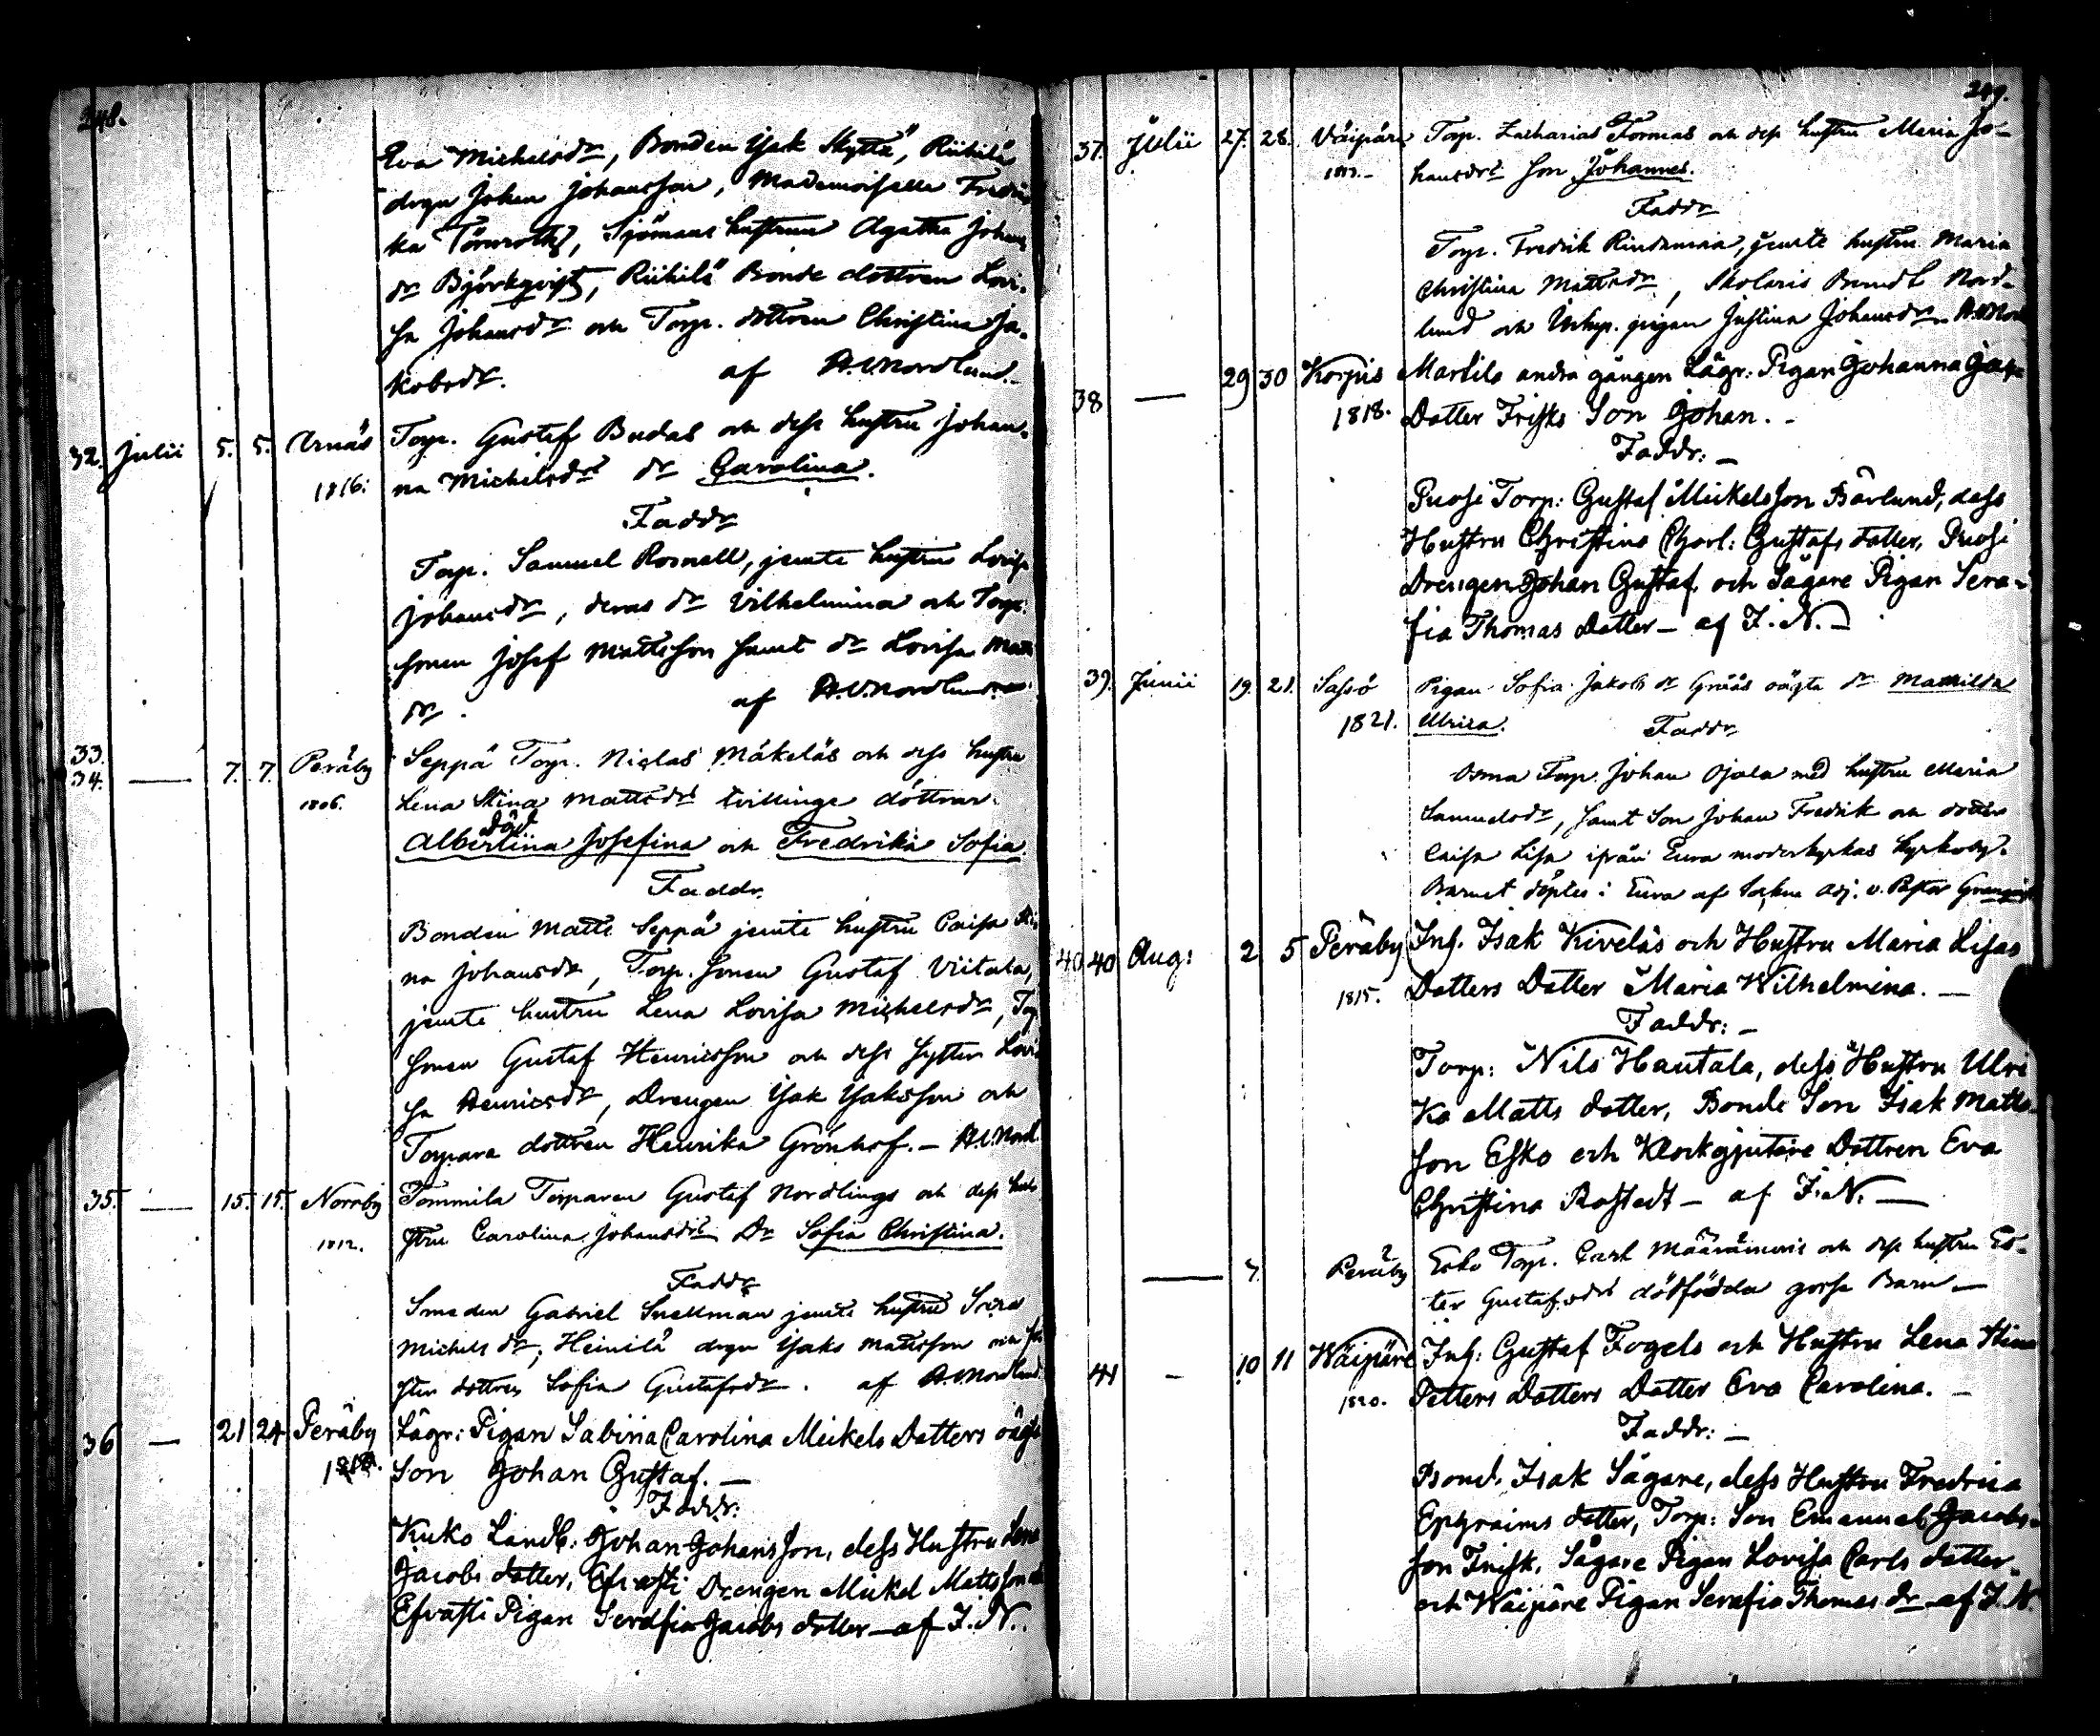 248.
Eva Michelsdr, Bonden Isak Skyttä, Riihilä
drgn Johan Johansson, Mademoiselle Fredri
ka Törnroth, Sjömans hustrun Agatha Johans
dr Björkqvist, Riihilä Bonde dottren Lovi-
sa Johansdr och Torp. dottren Christina Ja-
kobsdr. af A.V. Nordlund.
32. Julii 5. 5. Urnäs Torp. Gustaf Budas och dess hustru Johan-
1816. na Michelsdrs dr Carolina.
Faddr
Torp. Samuel Rosnell, jemte hustru Lovisa
Johansdr, deras dr Vilhelmina och Torp.
sonen Josef Mattsson samt dr Lovisa Matts
dr. af A.V. Nordlund.
33.
34. — 7. 7. Peräby Seppä Torp. Niclas Mäkeläs och dess hustru
1806. Lena Stina Mattsdrs tvillinge döttrar
död
Albertina Josefina och Fredrika Sofia
Faddr.
Bonden Matts Seppä jemte hustru Caisa Sti
na Johansdr, Torp. sonen Gustaf Viitala,
jemte hustru Lena Lovisa Michelsdr, Torp
sonen Gustaf Henricsson och dess syster Lovi
sa Henricsdr, Drengen Isak Isaksson och
Torpare dottren Henrika Grönhof. — A.V. Nord.
35. — 15. 15. Norrby Tommila Torparen Gustaf Nordlings och dess hu
1812. stru Carolina Johansdrs Dr Sofia Christina.
Faddr
Smeden Gabriel Snellman jemte hustru
Michelsdr, Heinilä drgn Isaks Mattsson och
dottren Sofia Gustafsdr. af A.V. Nordlund.
36 — 21 24 Peräby Lägr: Pigan Sabina Carolina Mickels Datters oägta
Son Johan Gustaf. —
Faddr:
Kuko Landb: Johan Johansson, dess Hustru Lena
Jacobs datter, Efvasti Drengen Mickel Mattsson och
Efvasti Pigan Serafia Jacobs datter — af I. N.
249.
37. Julii 27. 28. Väipäre Torp. Zacharias Formas och dess hustru Maria Jo-
hansdrs son Johannes.
Faddr
Torp. Fredrik Rindamaa, jemte hustru Maria
Christina Mattsdr, Skolaris Nord-
lund och Inhys. pigan Justina Johansdr. A.V. Nord
38 — 29 30 Korpis Martila andra gången Lägr: Pigan Johanna
1818. Datter Frisks Son Johan. —
Faddr: —
Puosi Torp: Gustaf Mickelsson Bärlund, dess
Hustru Christina Charl: Gustafs datter, Puosi
Drengen Johan Gustaf och Sägare Pigan Sera-
fia Thomas Datter — af I. N. —
39. Junii 19. 21. Sassö Pigan Sofia Jakobsdr Gråås oägta dr Mathilda
1821. Ulrica. Faddr
Osma Torp. Johan Ojala med hustru Maria
Samuelsdr, samt Son Johan Fredrik och dotter
Caisa Lisa ifrån Eura moderkyrkas kyrkoby.
Barnet döptes i Eura af Sockne Adj. v. Pastor Granqvist
40 40 Aug: 2 5 Peräby Inh. Isak Kiveläs och Hustru Maria Lisas
1815. Datters Datter Maria Wilhelmina. —
Faddr: —
Torp: Nils Hautala, dess Hustru Ulri
ka Matts datter, Bonde Son Isak Matts-
son Esko och Klockgjutare Dottren Eva
Christina Rostedt — af I. N. —
— 7. Peräby Esko Torp. Carl Määrämeris och dess hustru Es-
ter Gustafsdrs dödfödda gosse Barn —
41 — 10 11 Wäipäre Inh: Gustaf Fogels och Hustru Lena Stina
1820. Petters Datters Datter Eva Carolina. —
Faddr: —
Bond. Isak Sägare, dess Hustru Fredrica
Ephraims datter, Torp: Son Emanuel Jacobs-
son Frisk, Sägare Pigan Lovisa Carls datter
och Wäipäre Pigan Serafia Thomas dr — af I. N.